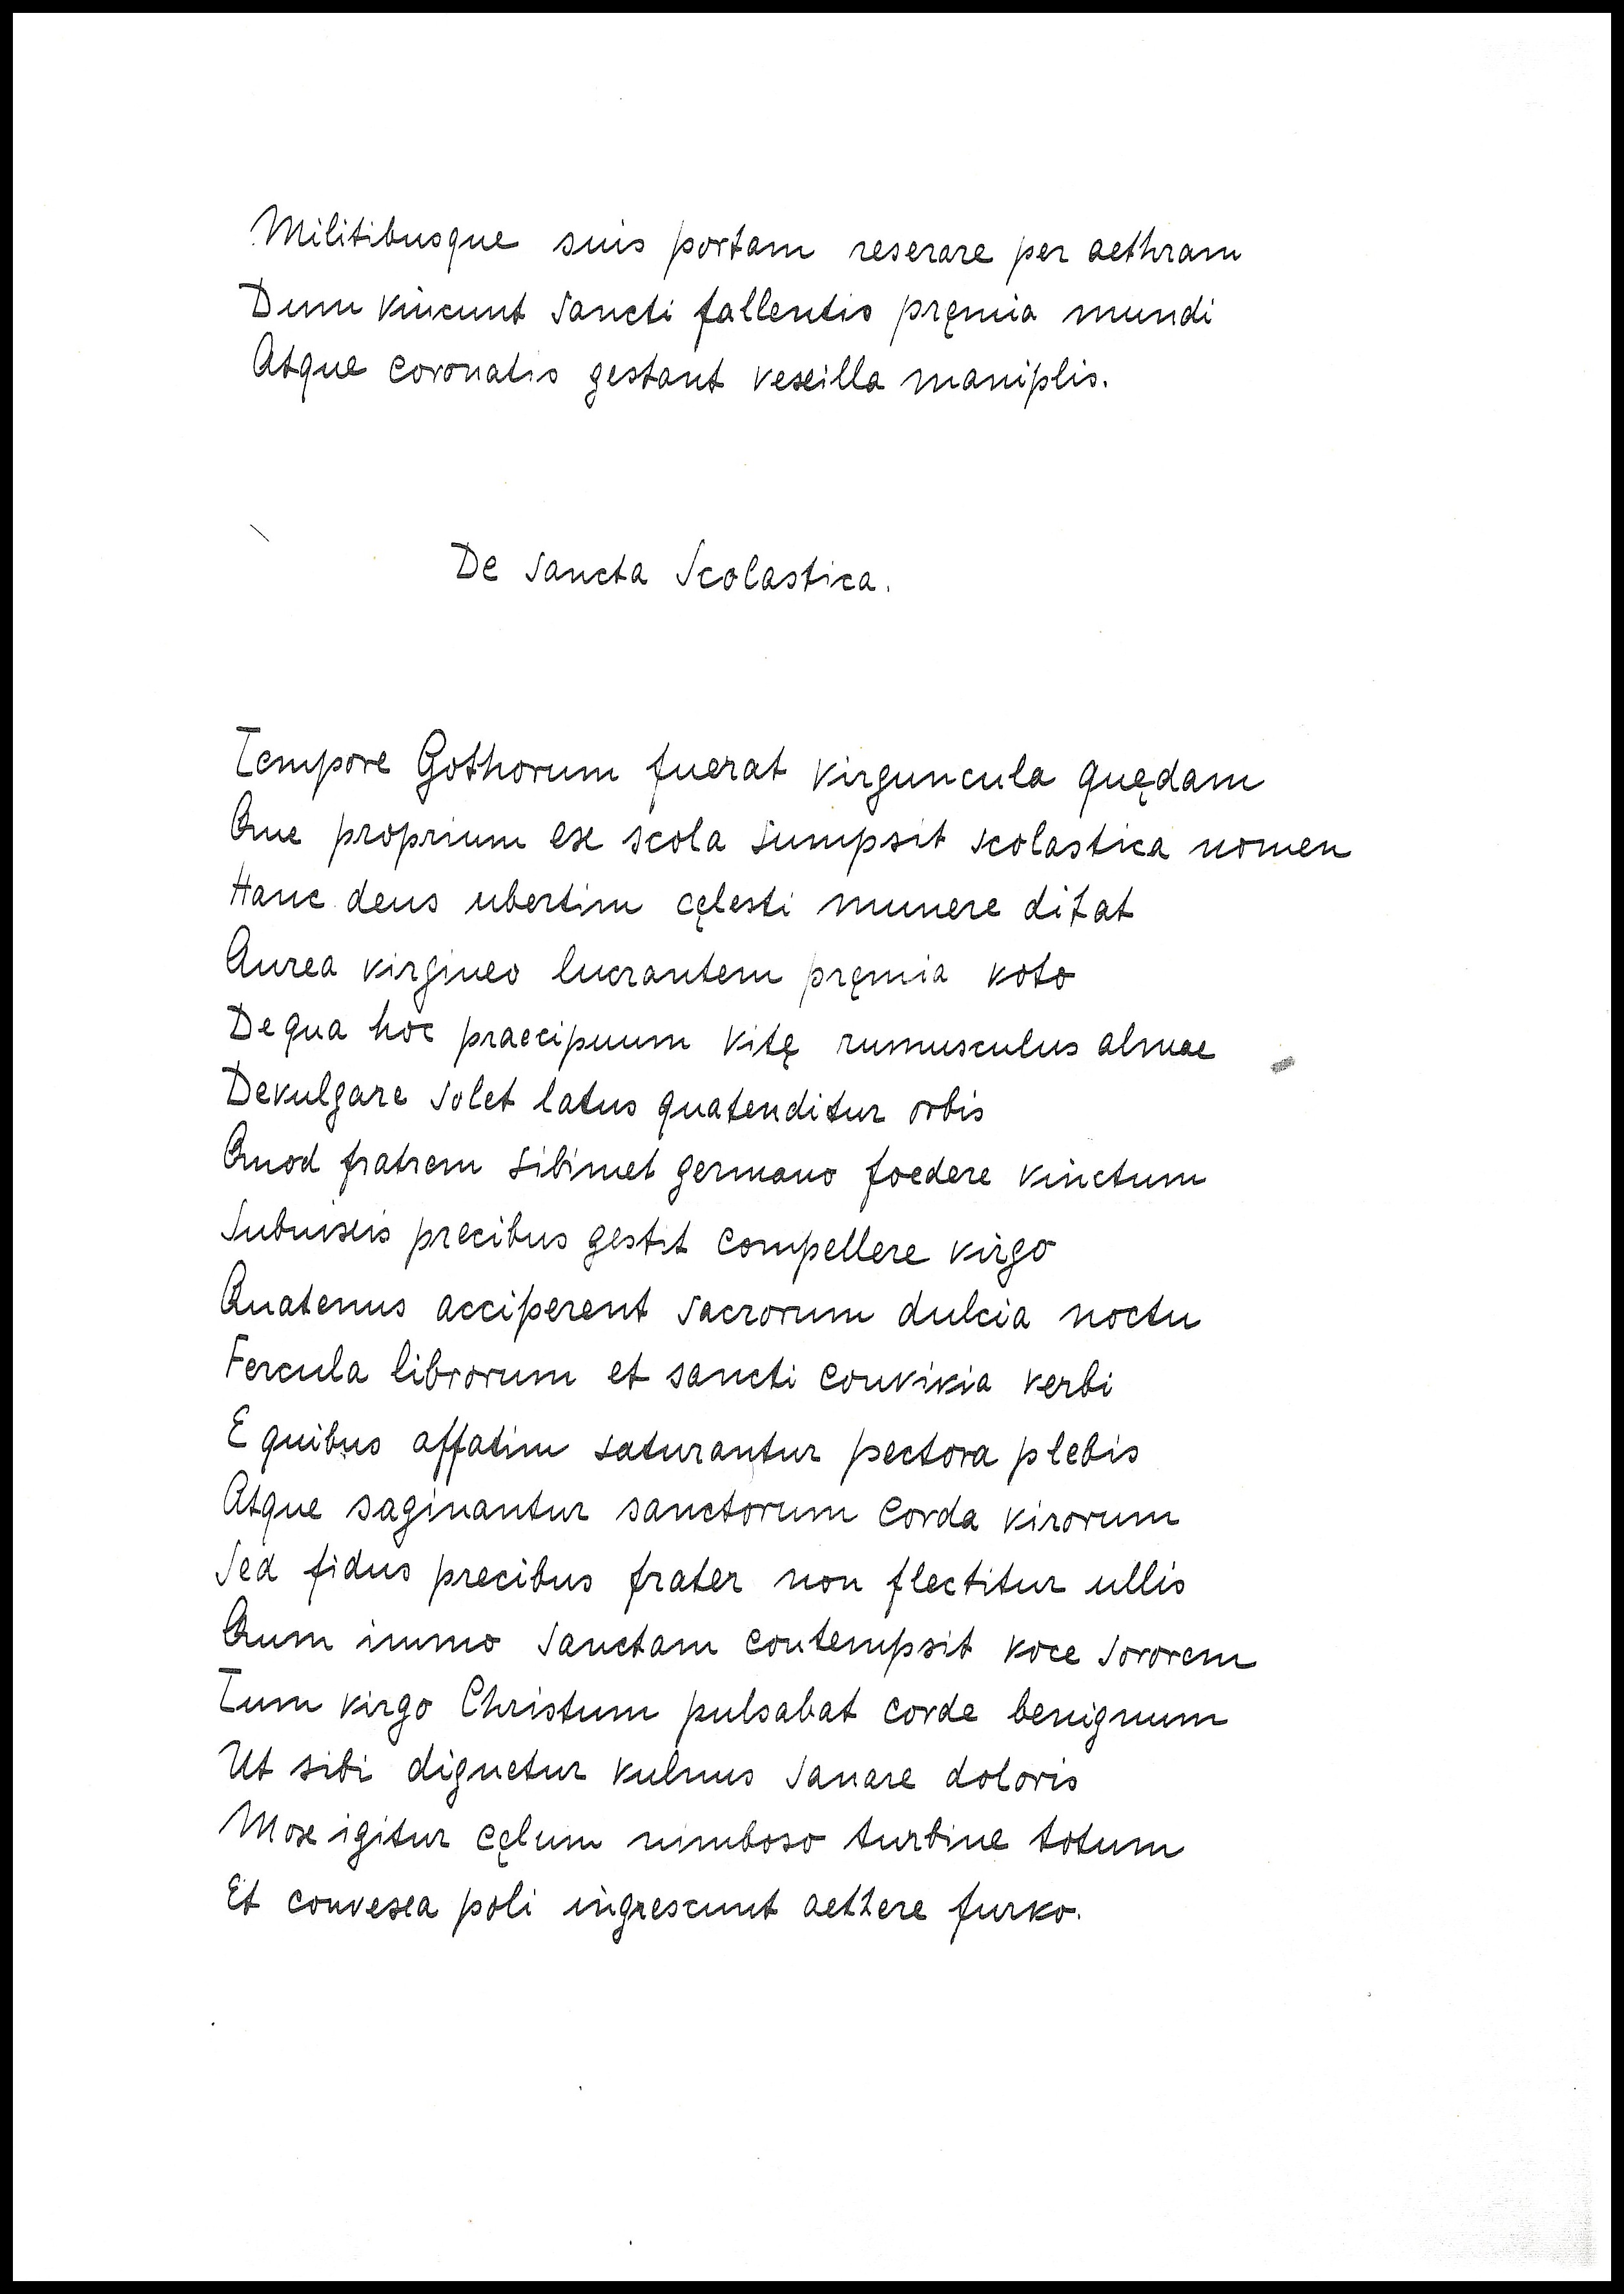 Militibusque suis portam reserare per aethram
Dum vincunt sancti fallentis pręmia mundi
Atque coronatis gestant vexilla maniplis.
De sancta Scolastica.
Tempore Gothorum fuerat virguncula quędam
Que proprium ex scola sumpsit scolastica nomen
Hanc deus ubertim cęlesti munere ditat
Aurea virgineo lucrantem pręmia voto
De qua hoc praecipuum vitę rumusculus almae
Devulgare solet latus quatenditur orbis
Quod fratrem sibimet germano foedere vinctum
Subnixis precibus gestit compellere virgo
Quatenus acciperent sacrorum dulcia noctu
Fercula librorum et sancti convivia verbi
E quibus affatim saturantur pectora plebis
Atque saginantur sanctorum corda virorum
Sed fidus precibus frater non flectitur ullis
Quum immo sanctam contempsit voce sororem
Tum virgo Christum pulsabat corde benignum
Ut sibi dignetur vulnus sanare doloris
Mox igitur cęlum nimboso turbine totum
Et convexa poli nigrescunt aethere furvo.